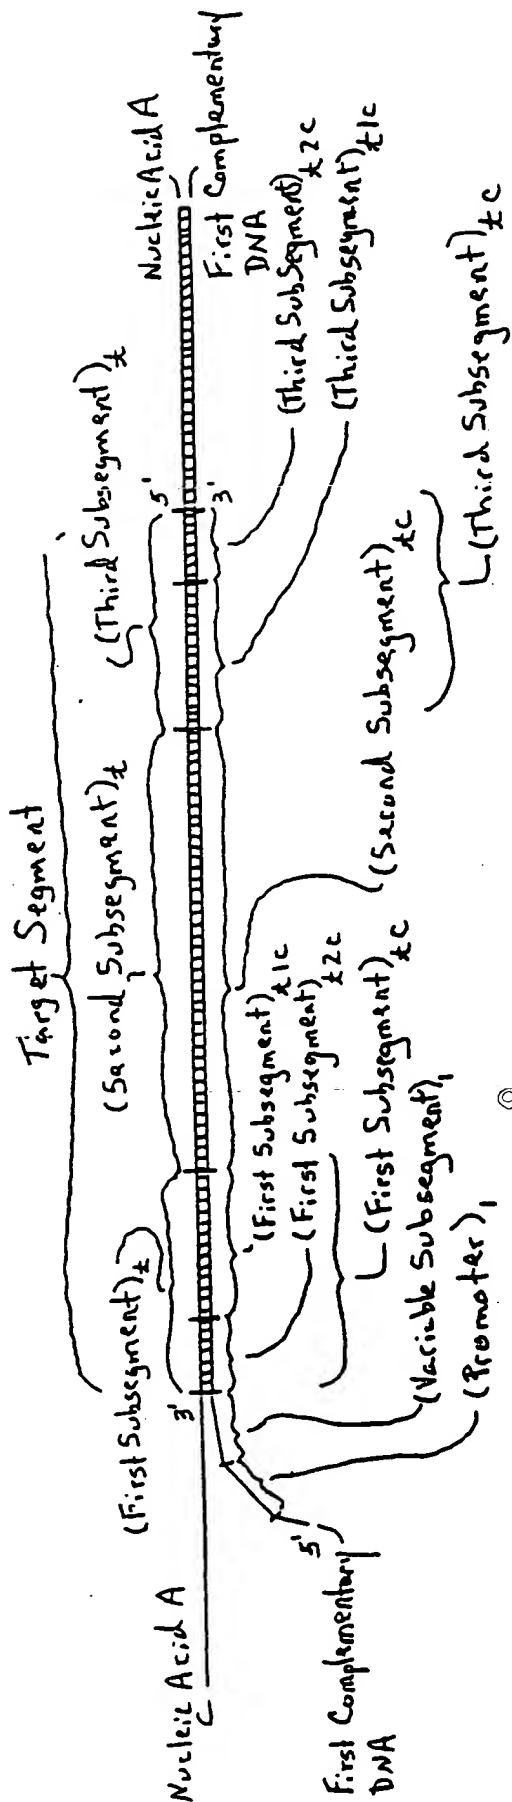 Target Segment
(First Subsegment)t
(Second Subsegment)t
(Third Subsegment)t
Nucleic Acid A
3'
5'
Nucleic Acid A
First Complementary
DNA
3'
5'
First Complementary
DNA
(First Subsegment)t1c
(First Subsegment)t2c
(First Subsegment)tc
(Variable Subsegment)1
(Promoter)1
(Second Subsegment)tc
(Third Subsegment)t2c
(Third Subsegment)t1c
(Third Subsegment)tc